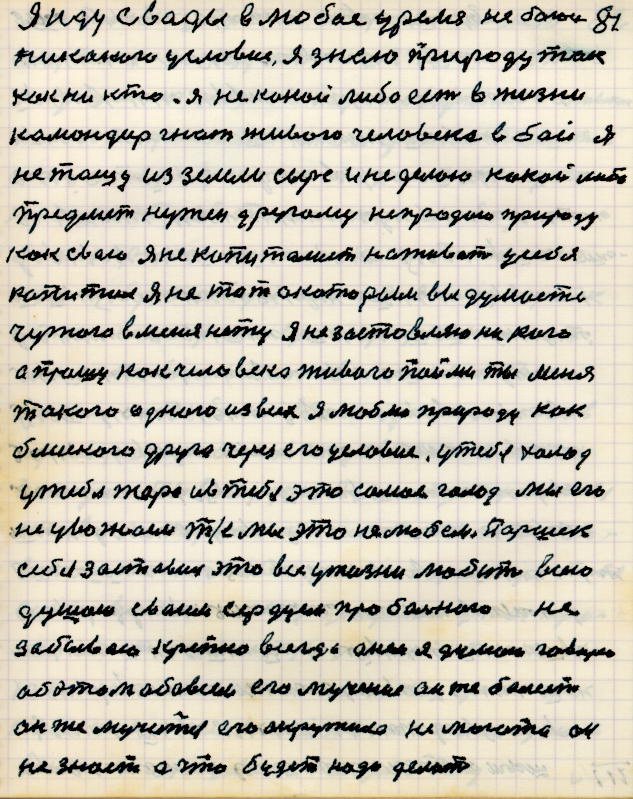 Я иду с вады в любое уремя не боюи 81
никакого условие, я знаю природу так
как ни кто. я не какой либо ест в жизни
камондир гнат живого человека в бой я
не тащу из земли сырё и не делаю какой либо
предмет нужен другому не продаю природу
как сваю я не капиталист наживат усебя
капитал я не тот окаторым вы думаете
чужого вменя нету я не заставляю ни кого
а прашу как человека живого пойми ты меня
такого одного извех я люблю природу как
близкого друга через его условие. утебя холод
утебя жара ивтебя это самое голод мы его
не уважаем т/е мы это не любем. Паршек
себя заставил это все ужизни любить всею
душою сваем сердцем про балного не
забываю крепко всегда а нем я думаю говорю
аб этом абовсем его мучение он же болеет
он же мучется его окружило не могота он
не знает а что будет надо делат